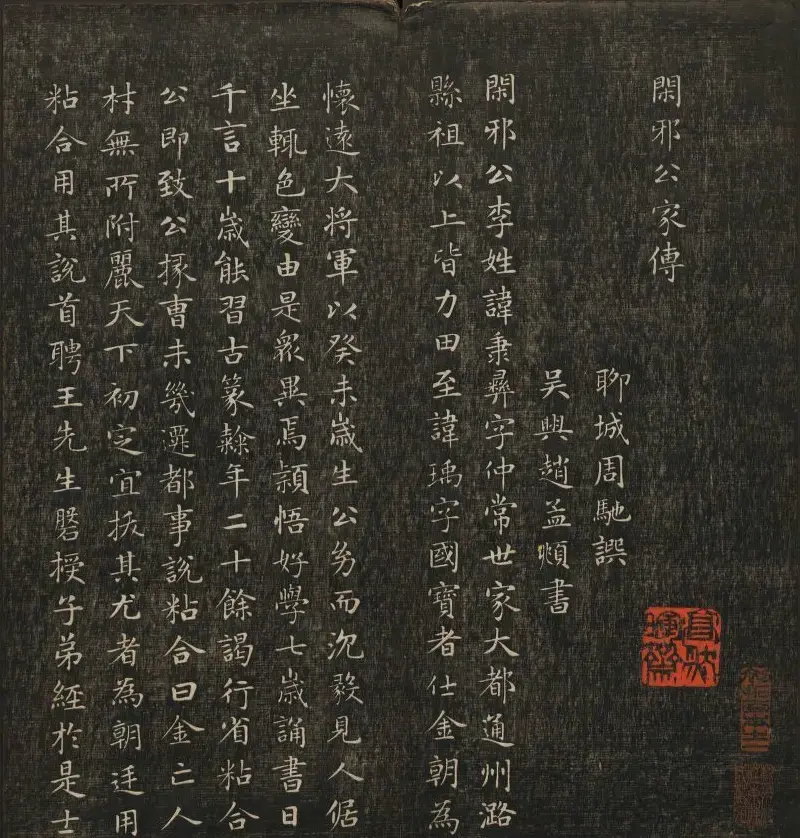 閑邪公家傳
聊城周馳譔
吴興趙孟頫書
閑邪公李姓諱秉彝字仲常世家大都通州潞
縣祖以上皆力田至諱瑀字國寶者仕金朝為
懷遠大將軍以癸未歲生公幼而沉毅見人倨
坐輒色變由是眾異焉頴悟好學七歲誦書日
千言十歲能習古篆隸年二十餘謁行省粘合
公即致公掾曹未幾遷都事說粘合曰金亡人
材無所附麗天下初定宜拔其尤者為朝廷用
粘合用其說首聘王先生磐授子弟經於是士